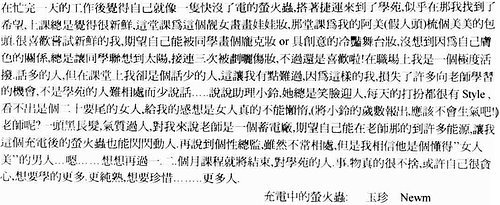 在忙完一天的工作後覺得自己就像一隻快沒了電的螢火蟲,搭著捷運來到了學苑,似乎在那我找到了
希望,上課總是覺得很新鮮,這堂課爲這個靚女畫畫娃娃妝,那堂課爲我的阿美(假人頭)梳個美美的包
頭,很喜歡嘗試新鮮的我,期望自己能被同學畫個龐克妝 or 具創意的冷豔舞台妝,沒想到因爲自己膚
色的關係,總是讓同學聯想到太陽,接連三次被劃曬傷妝,不過還是喜歡啦!在職場上我是一個極度活
撥,話多的人,但在課堂上我卻是個話少的人,這讓我有點難過,因爲這樣的我,損失了許多向老師學習
的機會,不是學苑的人難相處而少說話.....說說助理小鈴,她總是笑臉迎人,每天的打扮都很有 Style、
看不出是個二十要尾的女人,給我的感想是女人真的不能懶惰,(將小鈴的歲數報出,應該不會生氣吧!)
老師呢? 一頭黑長髮,氣質過人,對我來說老師是一個蓄電廠,期望自己能在老師那的到許多能源,讓我
這個充電後的螢火蟲也能閃閃動人,再說到個性總監,雖然不常相處,但是我相信他是個懂得"女人
美"的男人...嗯......想想再過一.二個月課程就將結束,對學苑的人.事.物真的很不捨,或許自己很貪
心,想要學的更多.更純熟,想要珍惜........更多人.
充電中的螢火蟲: 玉珍 Newm